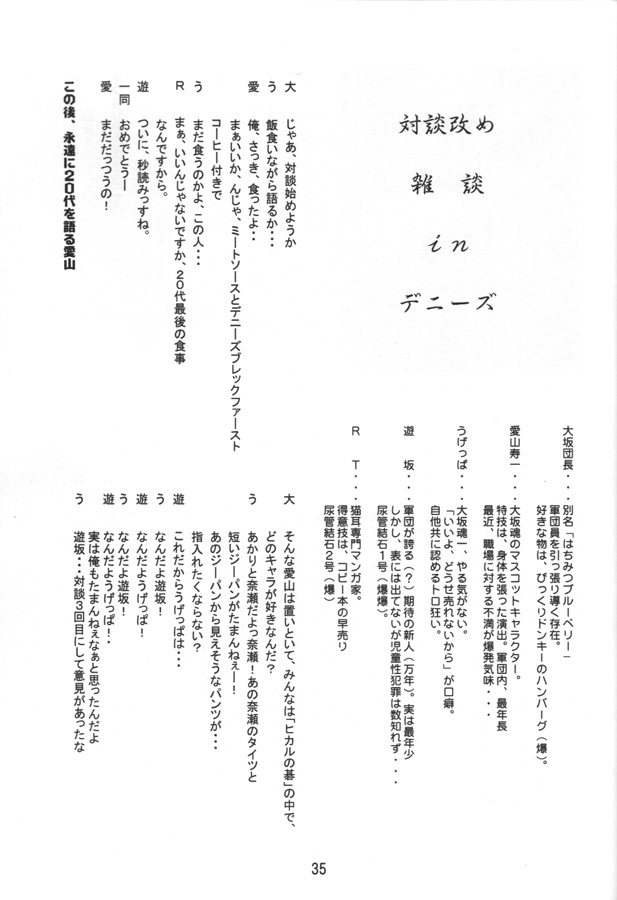 対談改め
雑談
in
デニーズ
大坂団長・・・別名「はちみつブルーベリー」
軍団員を引っ張り導く存在。
好きな物は、びっくりドンキーのハンバーグ（爆）。
愛山寿一・・・大坂魂のマスコットキャラクター。
特技は、身体を張った演出。軍団内、最年長
最近、職場に対する不満が爆発気味・・・
うげっぱ・・・大坂魂一、やる気がない。
「いいよ、どうせ売れないから」が口癖。
自他共に認めるトロ狂い。
遊　坂・・・軍団が誇る（？）期待の新人（万年）。実は最年少
しかし、表には出てないが児童性犯罪は数知れず・・・
尿管結石１号（爆爆）。
Ｒ　Ｔ・・・猫耳専門マンガ家。
得意技は、コピー本の早売り
尿管結石２号（爆）
大　じゃあ、対談始めようか
う　飯食いながら語るか・・・
愛　俺、さっき、食ったよ・・
まぁいいか、んじゃ、ミートソースとデニーズブレックファースト
コーヒー付きで
う　まだ食うのかよ、この人・・・
Ｒ　まぁ、いいんじゃないですか、２０代最後の食事
なんですから。
遊　ついに、秒読みっすね。
一同　おめでとうー
愛　まだだっつうの！
この後、永遠に２０代を語る愛山
大　そんな愛山は置いといて、みんなは「ヒカルの碁」の中で、
どのキャラが好きなんだ？
う　あかりと奈瀬だよっ奈瀬！あの奈瀬のタイツと
短いジーパンがたまんねぇー！
あのジーパンから見えそうなパンツが・・・
指入れたくならない？
遊　これだからうげっぱは・・・
う　なんだよ遊坂！
遊　なんだようげっぱ！
う　なんだよ遊坂！
遊　なんだようげっぱ！・
実は俺もたまんねぇなぁと思ったんだよ
う　遊坂・・・対談３回目にして意見があったな
35